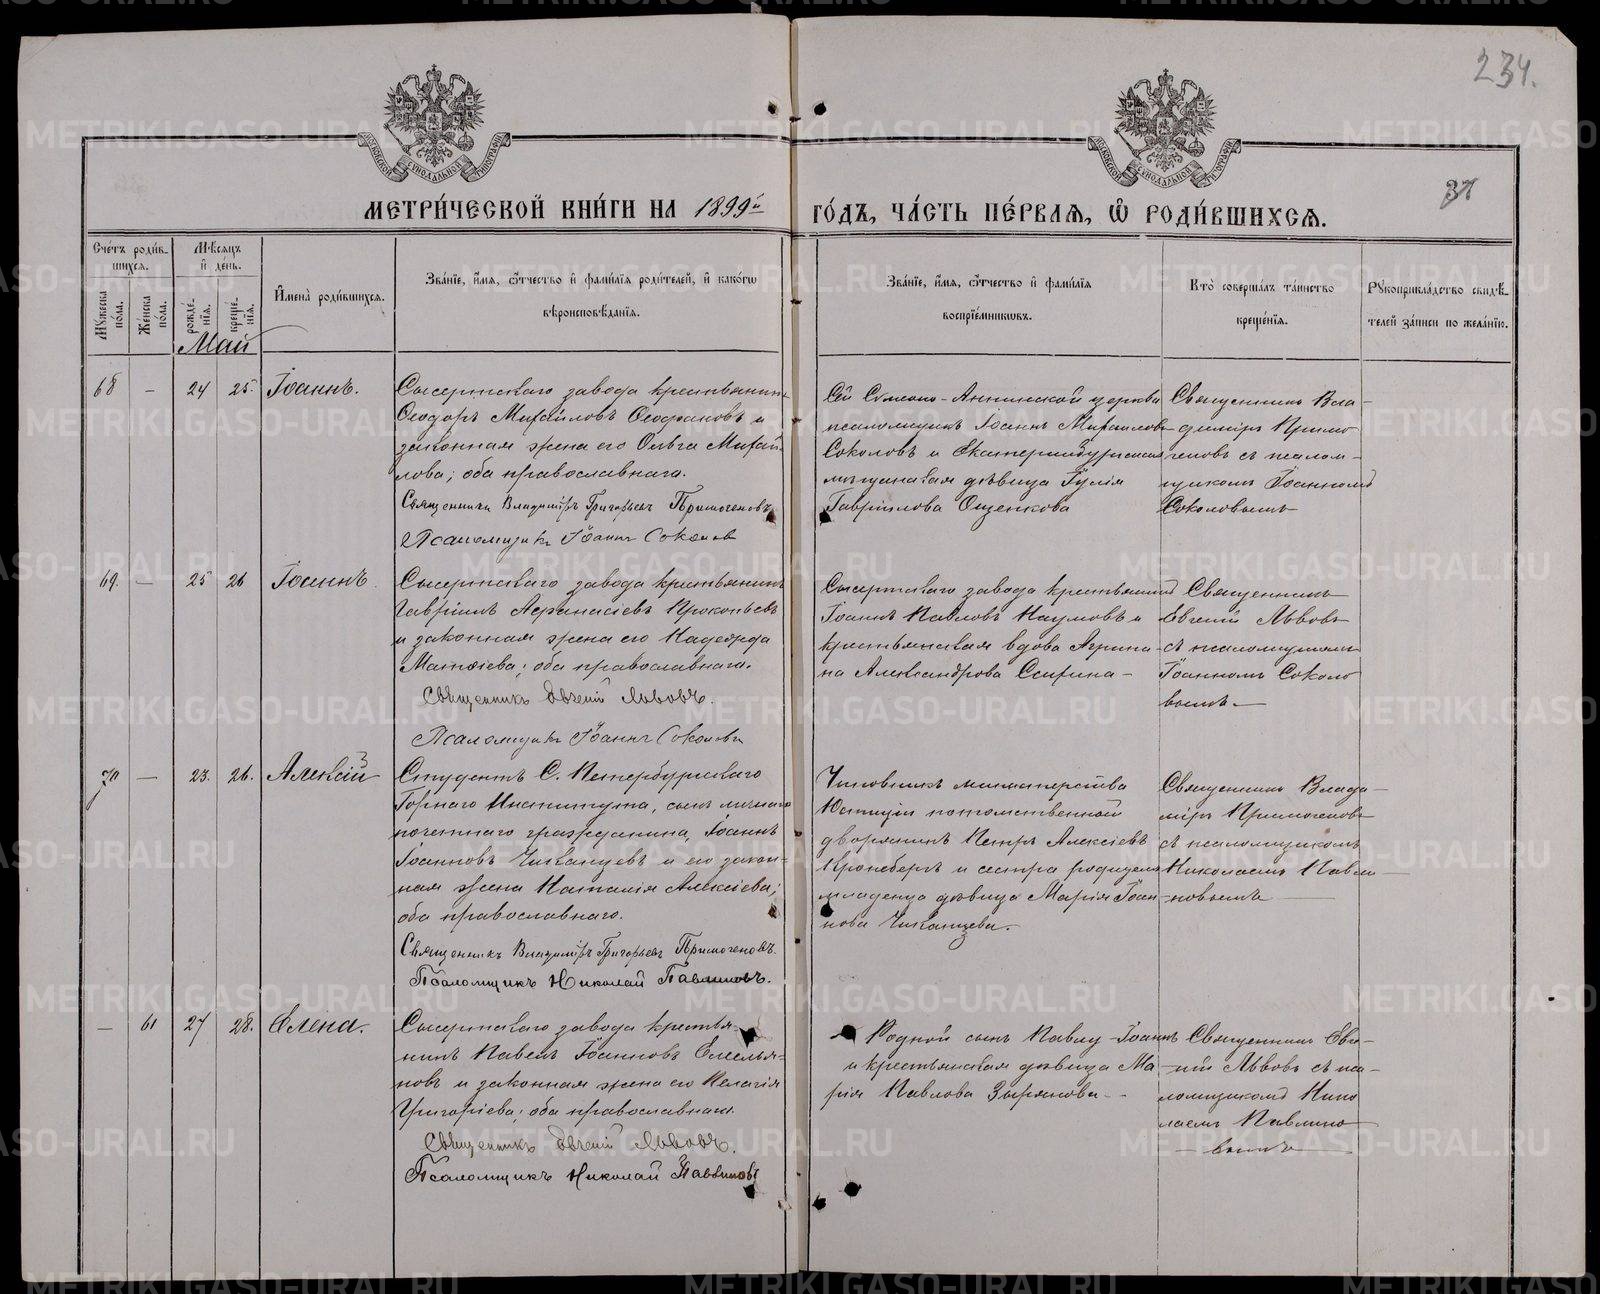 234.
37
МЕТРИ́ЧЕСКОЙ КНИ́ГИ НА 1899й ГО́ДЪ, ЧА́СТЬ ПЕ́РВАЯ, Ѽ РОДИ́ВШИХСЯ.
Сче́тъ роди́в-
шихся.
Мѣ́сяцъ
и҆ де́нь.
Мꙋ́жеска по́ла.
Же́нска по́ла.
рожде́-
нїя.
креще́-
нїя.
И҆мена̀ роди́вшихся.
Зва́нїе, и҆́мя, ѻ҆́тчество и҆ фами́лїя роди́телей, и҆ како́гѡ
вѣроисповѣ́данїя.
Зва́нїе, и҆́мя, ѻ҆́тчество и҆ фами́лїя
воспрїе́мникѡвъ.
Кто̀ соверша́лъ та́инство
креще́нїя.
Рꙋкоприкла́дство свидѣ́-
телей за́писи по жела́нїю.
Май
68 - 24 25. Іоаннъ.
Сысертскаго завода крестьянинъ
Ѳеодоръ Михайловъ Ѳеофановъ и
законная жена его Ольга Михай
лова; оба православнаго.
Священникъ Владимiръ Григорьевъ Примогеновъ
Псаломщикъ Іоаннъ Соколовъ
Сей Симеоно-Аннинской церкви
псаломщикъ Іоаннъ Михаиловъ
Соколовъ и Екатеринбургская
мѣщанская дѣвица Іулія
Гавріилова Ощепкова
Священникъ Вла-
диміръ Примо
геновъ съ псалом-
щикомъ Іоанномъ
Соколовымъ
69. - 25 26 Іоаннъ.
Сысертскаго завода крестьянинъ
Гавріилъ Аѳанасіевъ Прокопьевъ
и законная жена его Надежда
Матѳіева; оба православнаго.
Священникъ Евгеній Львовъ.
Псаломщикъ Іоаннъ Соколовъ
Сысертскаго завода крестьянинъ
Іоаннъ Павловъ Наумовъ и
крестьянская вдова Агрипи-
на Александрова
Священникъ
Евгеній Львовъ
съ псаломщикомъ
Іоанномъ Соколо
вымъ.
70 - 23. 26. Алексій
Студентъ С. Петербургскаго
Горнаго Института, сынъ личнаго
почетнаго гражданина, Іоаннъ
Іоанновъ Чиканцевъ и его закон-
ная жена Наталія Алексіева;
оба православнаго.
Священникъ Владимiръ Григорьевъ Примогеновъ.
Псаломщикъ Николай Павлиновъ.
Чиновникъ министерства
Юстиціи потомственный
дворянинъ Петръ Алексіевъ
Кронебергъ и сестра родителя
младенца дѣвица Марія Іоан-
нова Чиканцева.
Священникъ Влади-
міръ Примогеновъ
съ псаломщикомъ
Николаемъ Павли-
новымъ
- 61 27 28. Елена.
Сысертскаго завода крестья-
нинъ Павелъ Іоанновъ Емелья-
новъ и законная жена его Пелагія
Григоріева; оба православнаго.
Священникъ Евгеній Львовъ.
Псаломщикъ Николай Павлиновъ
Родной сынъ Павлу Іоаннъ
и крестьянская дѣвица Ма-
рія Павлова Зырянова
Священникъ Евге-
ній Львовъ съ пса-
ломщикомъ Нико
лаемъ Павлино
вымъ